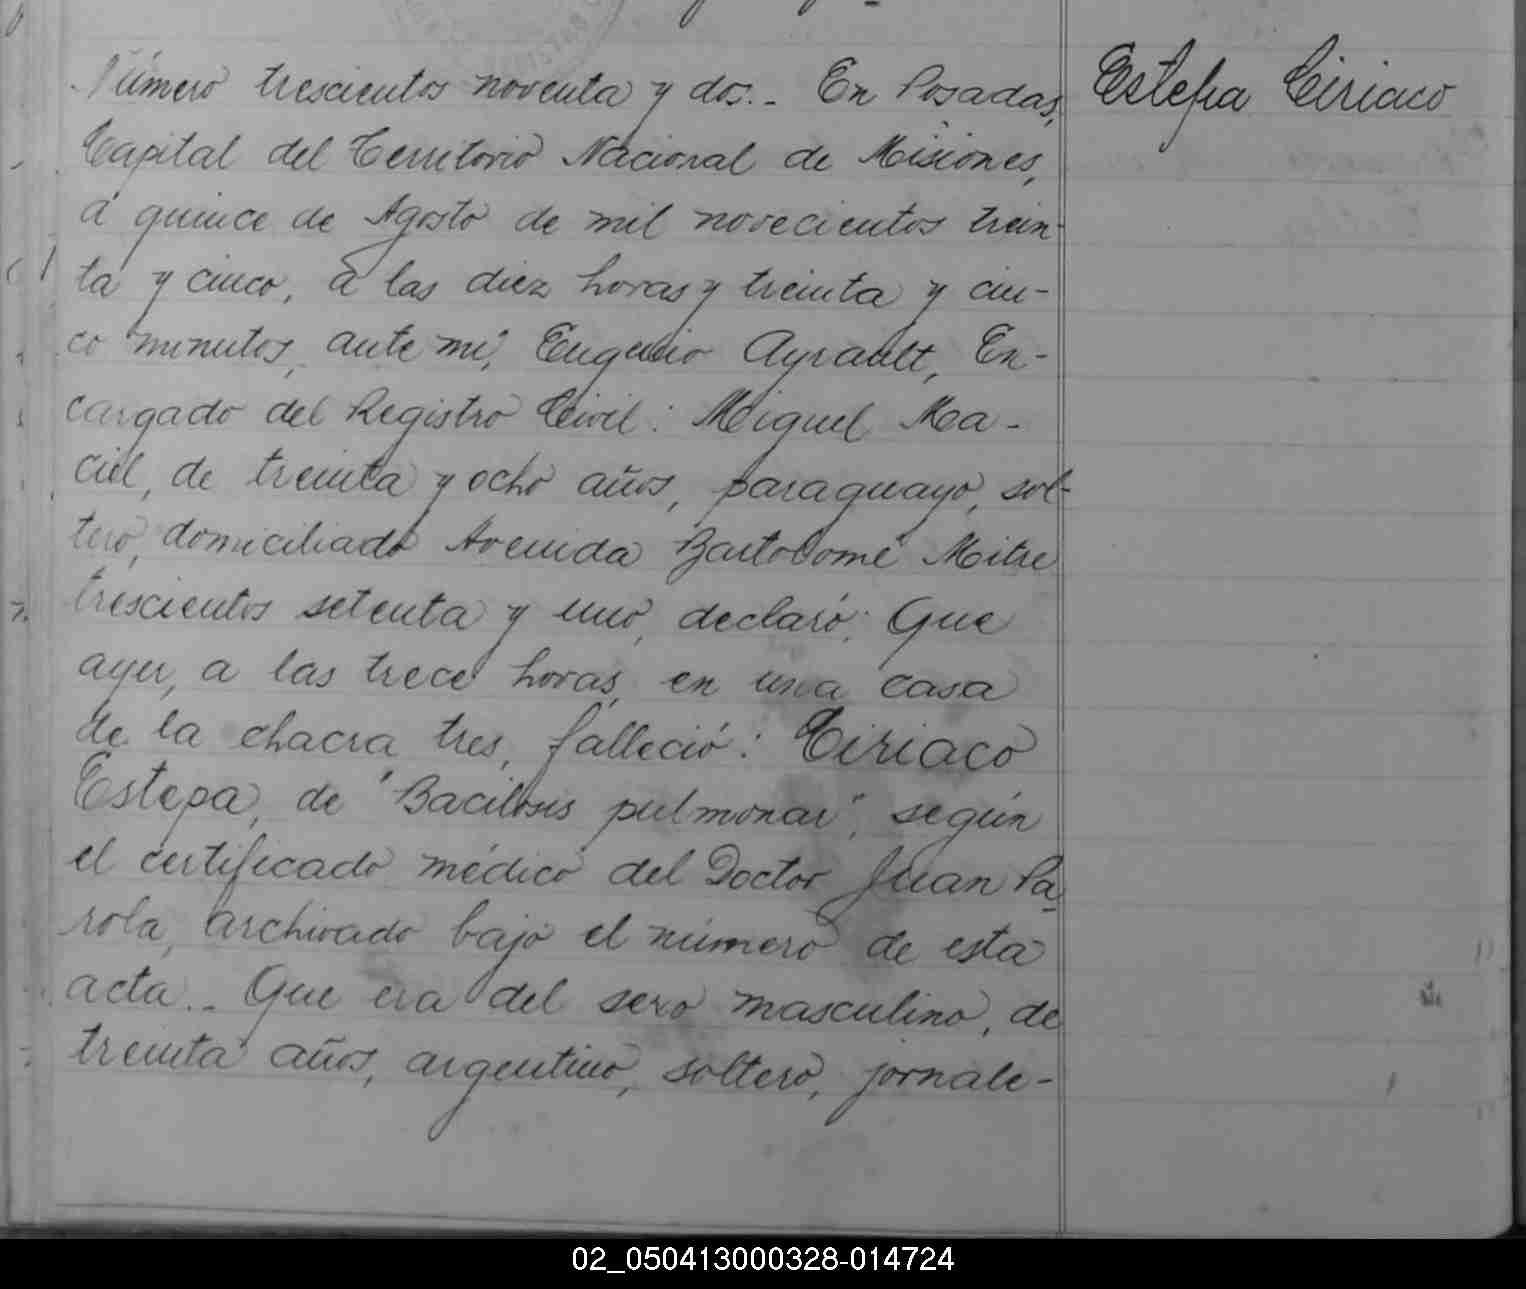 Número trescientos noventa y dos.- En Posadas,
Capital del Territorio Nacional de Misiones,
á quince de Agosto de mil novecientos trein-
ta y cinco, á las diez horas y treinta y cin-
co minutos, ante mí, Eugenio Ayrault, En-
cargado del Registro Civil: Miguel Ma-
ciel, de treinta y ocho años, paraguayo, sol-
tero, domiciliado Avenida Bartolomé Mitre
trescientos setenta y uno, declaró: Que
ayer, a las trece horas, en una casa
de la chacra tres, falleció: Ciriaco
Estepa, de "Bacilosis pulmonar", según
el certificado médico del Doctor Juan Pa-
rola, archivado bajo el número de esta
acta.- Que era del sexo masculino, de
treinta años, argentino, soltero, jornale-
Estepa Ciriaco
02_050413000328-014724